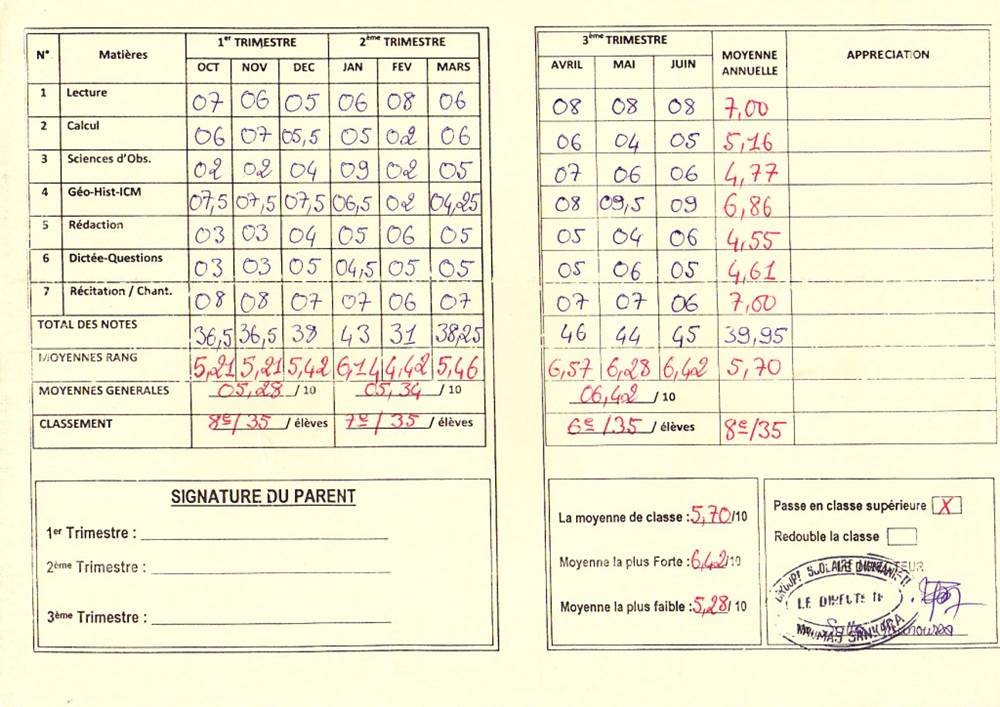 N° Matières 1er TRIMESTRE 2ème TRIMESTRE
OCT NOV DEC JAN FEV MARS
1 Lecture 07 06 05 06 08 06
2 Calcul 06 07 05,5 05 02 06
3 Sciences d'Obs. 02 02 04 09 02 05
4 Géo-Hist-ICM 07,5 07,5 07,5 06,5 02 04,25
5 Rédaction 03 03 04 05 06 05
6 Dictée-Questions 03 03 05 04,5 05 05
7 Récitation / Chant. 08 08 07 07 06 07
TOTAL DES NOTES 36,5 36,5 38 43 31 38,25
MOYENNES RANG 5,21 5,21 5,42 6,14 4,42 5,46
MOYENNES GENERALES 05,28 / 10 05,34 / 10
CLASSEMENT 8e/35 / élèves 7e/35 / élèves
3ème TRIMESTRE MOYENNE ANNUELLE APPRECIATION
AVRIL MAI JUIN
08 08 08 7,00
06 04 05 5,16
07 06 06 4,77
08 09,5 09 6,86
05 04 06 4,55
05 06 05 4,61
07 07 06 7,00
46 44 45 39,95
6,57 6,28 6,42 5,70
06,42 / 10
6e/35 / élèves 8e/35
SIGNATURE DU PARENT
1er Trimestre :
2ème Trimestre :
3ème Trimestre :
La moyenne de classe : 5,70/10
Moyenne la plus Forte : 6,42/10
Moyenne la plus faible : 5,28/10
Passe en classe supérieure X
Redouble la classe
LE DIRECTEUR